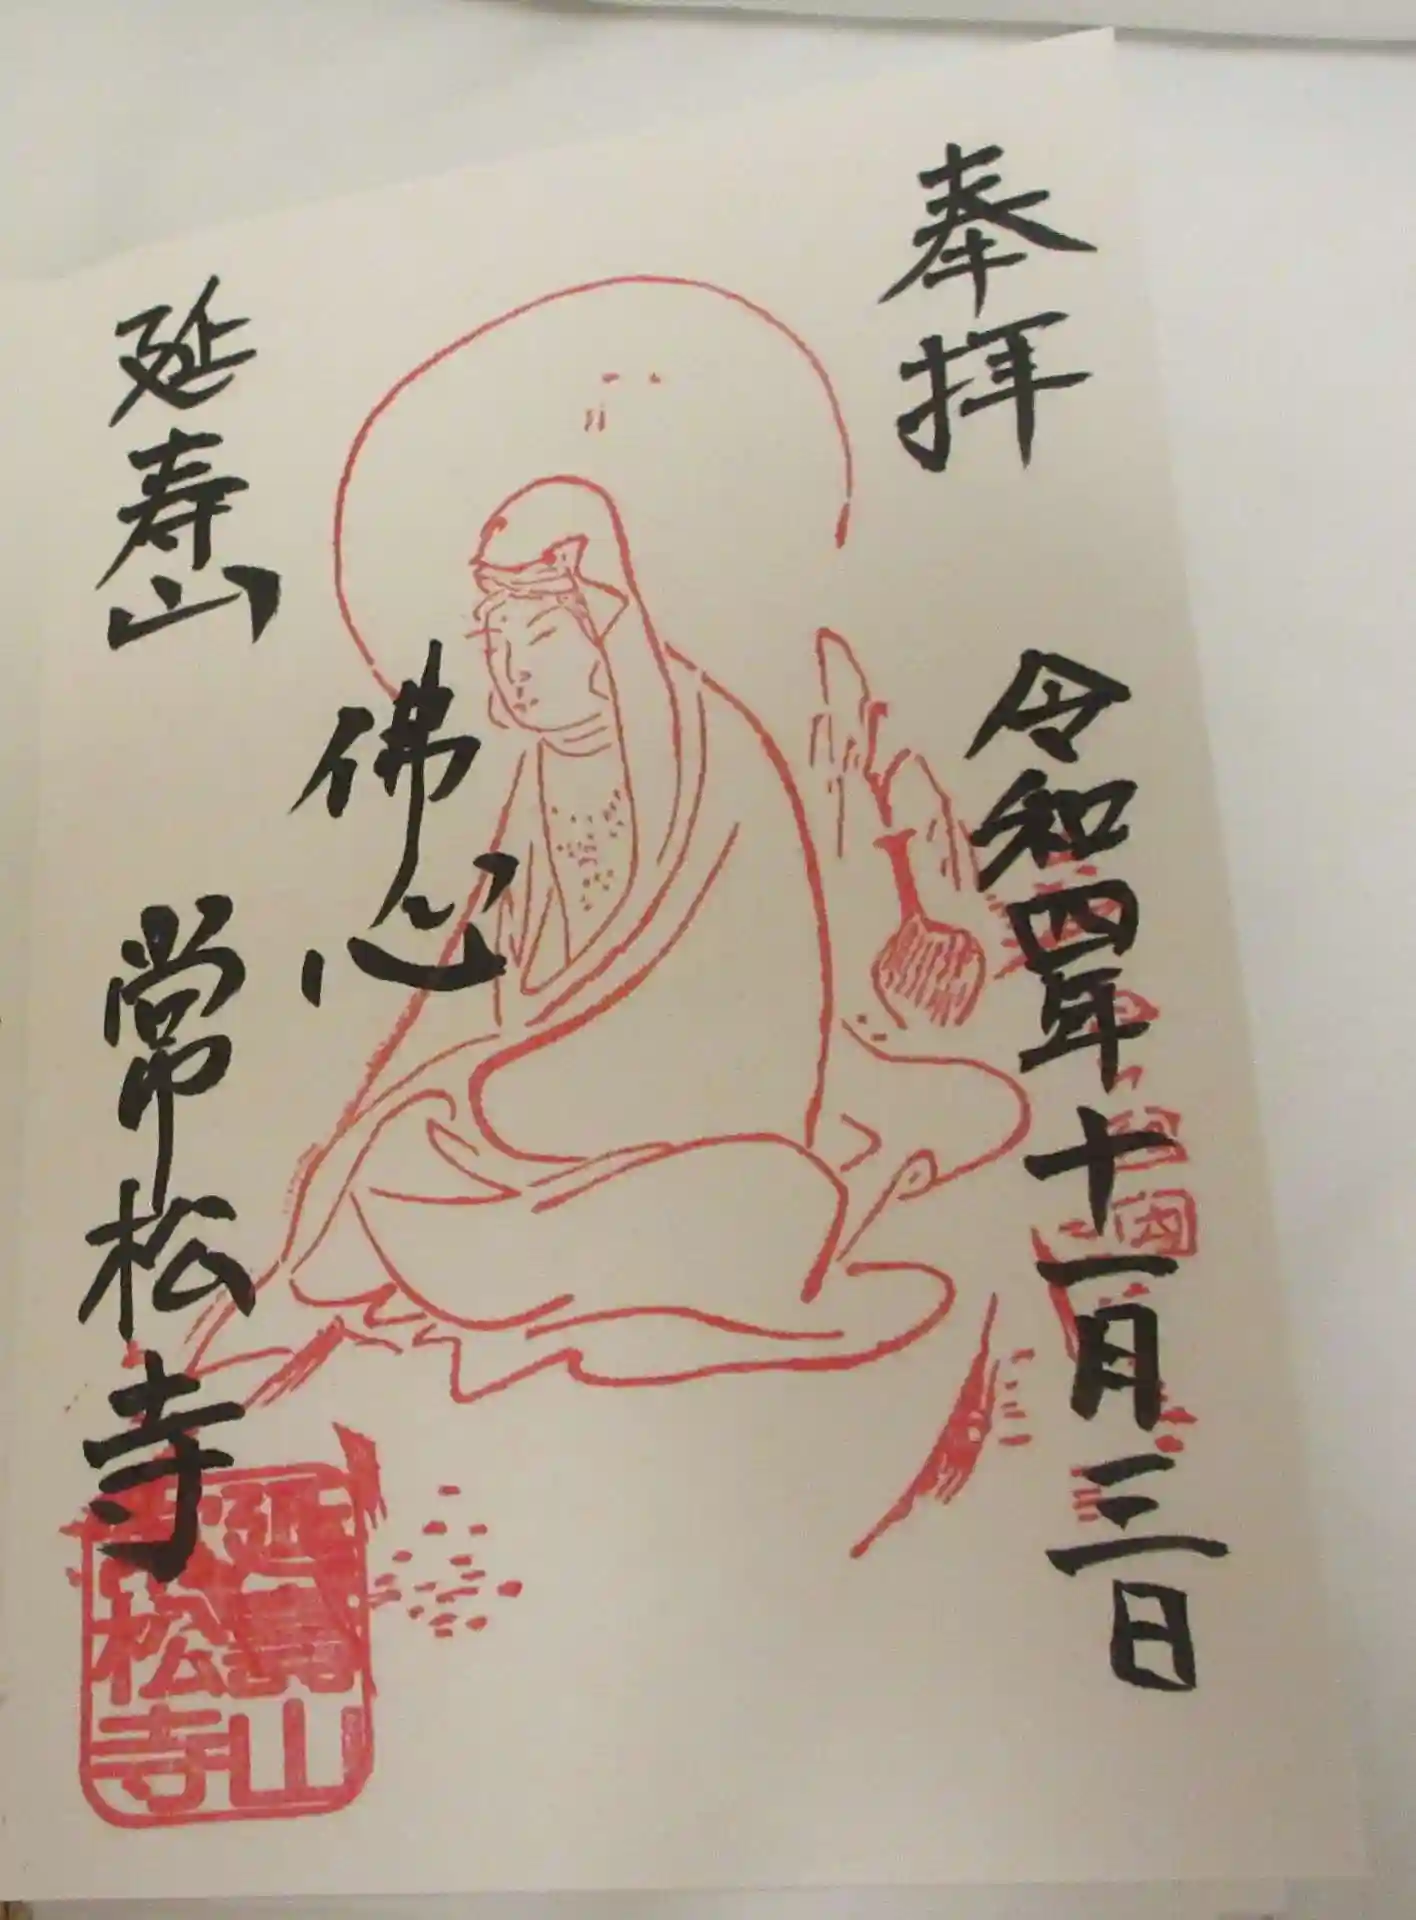 奉拝
令和四年十一月三日
佛心
延寿山
常松寺
延壽山
松寺